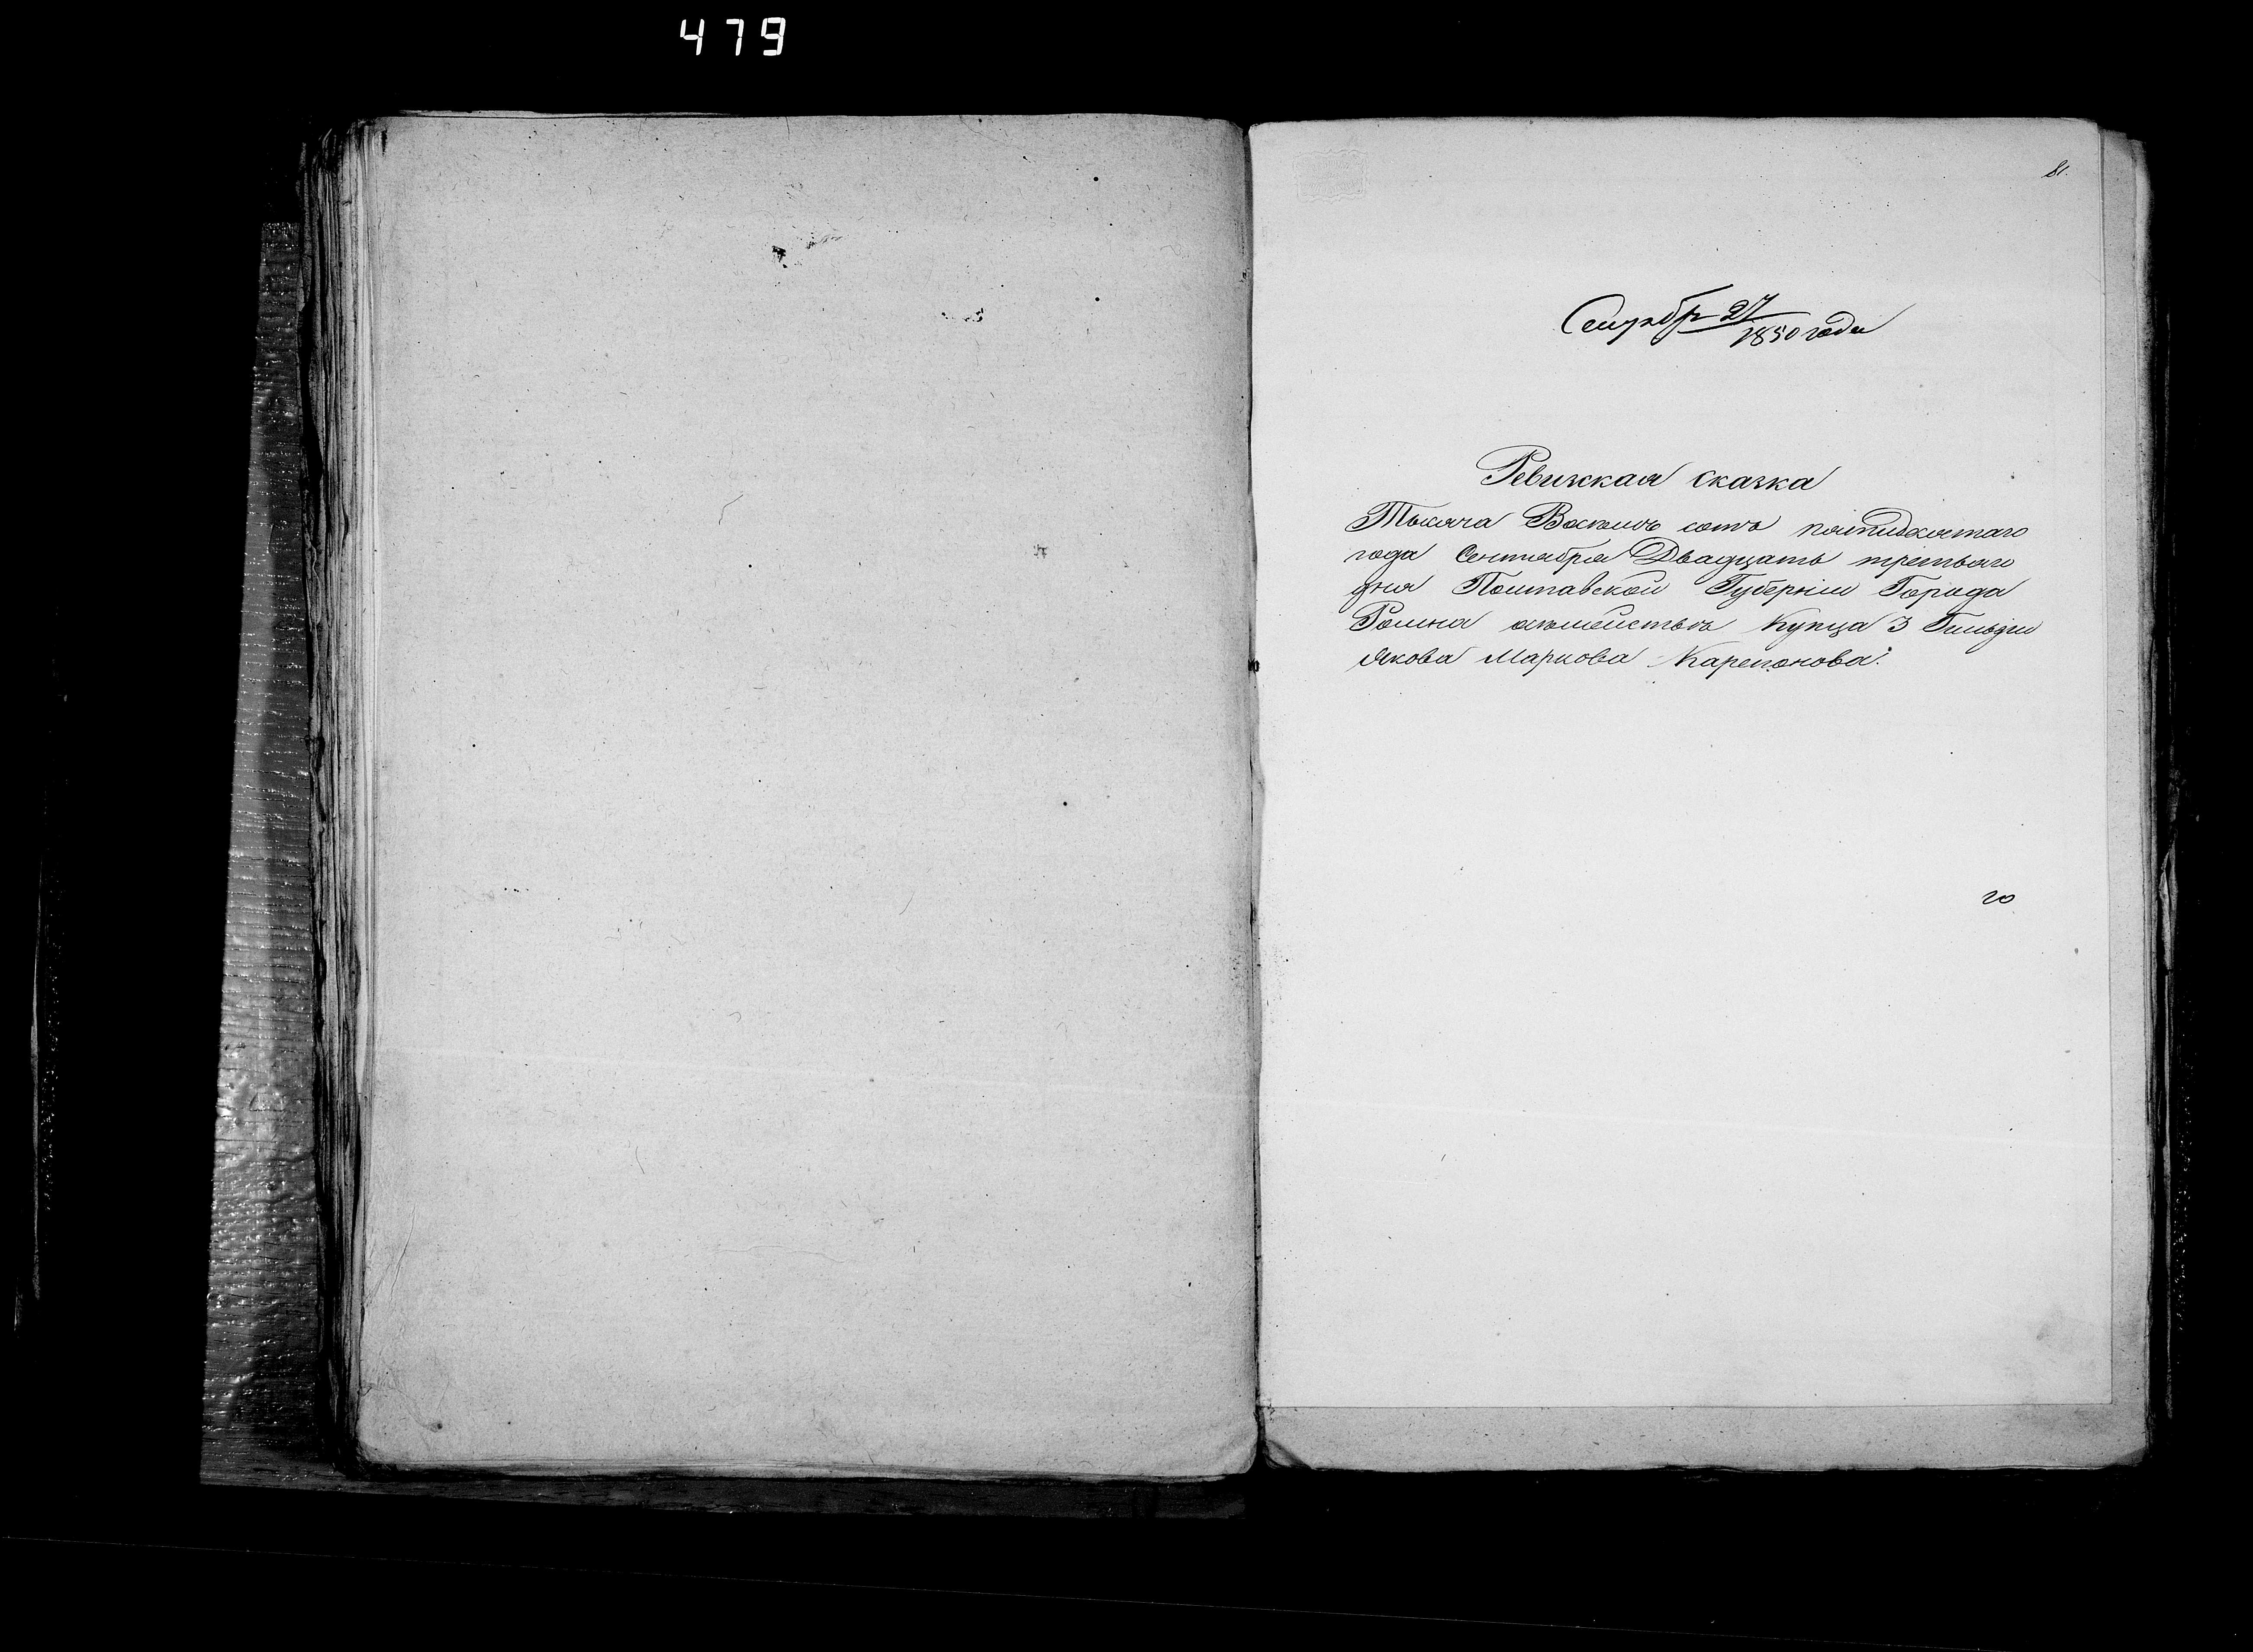 479
81.
Сентября 27
1850 года
Ревизская сказка
Тысяча Восемь сотъ пятидесятаго
года Сентября Двадцать третьяго
дня Полтавской Губерніи Города
Ромна Купца 3 Гильдіи
Якова Маркова
го